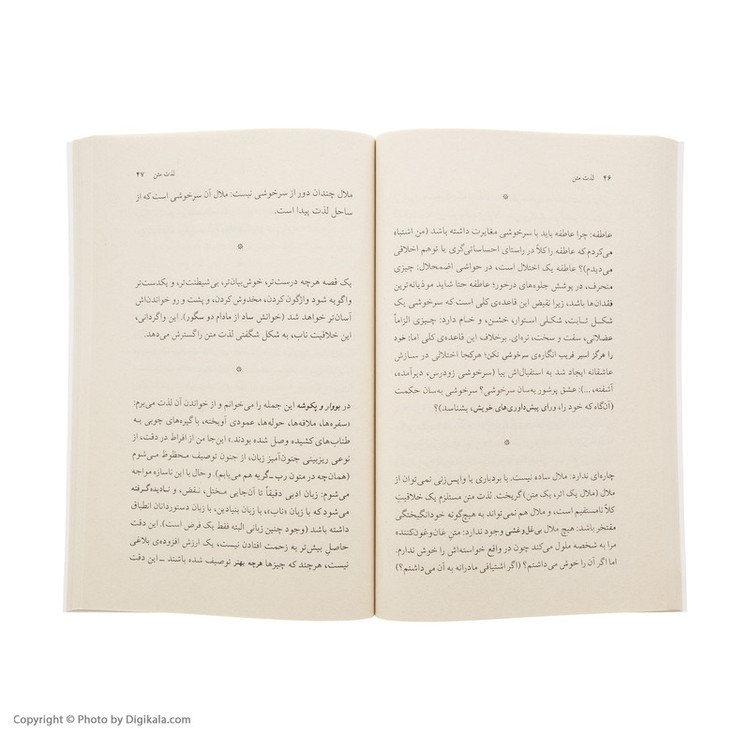 ۲۶ لذت متن
عاطفه: چرا عاطفه باید با سرخوشی مغایرت داشته باشد (من اشتباه
می‌کردم که عاطفه را کلاً در راستای احساساتی‌گری با توهم اخلاقی
می‌دیدم)؟ عاطفه یک اختلال است، در حواشی اضمحلال: چیزی
منحرف، در پوشش جلوه‌های درخور؛ عاطفه حتا شاید موذیانه‌ترین
فقدان‌ها باشد، زیرا نقیض این قاعده‌ی کلی است که سرخوشی یک
شکل ثابت، شکلی استوار، خشن، و خام دارد: چیزی الزاماً
عضلانی، سفت و سخت، نره‌ای. برخلاف این قاعده‌ی کلی اما: خود
را هرگز اسیر فریب انگاره‌ی سرخوشی نکن؛ هرکجا اختلالی در سازش
عاشقانه ایجاد شد به استقبال‌اش بیا (سرخوشی زودرس، دیرآمده،
آشفته، ...): عشق پرشور به‌سان سرخوشی؟ سرخوشی به‌سان حکمت
(آنگاه که خود را، ورای پیش‌داوری‌های خویش، بشناسد)؟
چاره‌ای ندارد: ملال ساده نیست. با بردباری یا واپس‌زنی نمی‌توان از
ملال (ملال یک اثر، یک متن) گریخت. لذت متن مستلزم یک خلاقیتِ
کلاً نامستقیم است، و ملال هم نمی‌تواند به هیچ‌گونه خودانگیختگی
مفتخر باشد: هیچ ملال بی‌غل‌وغشی وجود ندارد: متنِ غان‌وغون‌کننده
مرا به شخصه ملول می‌کند چون در واقع خواسته‌اش را خوش ندارم.
اما اگر آن را خوش می‌داشتم؟ (اگر اشتیاقی مادرانه به آن می‌داشتم؟)
لذت متن ۲۷
ملال چندان دور از سرخوشی نیست: ملال آن سرخوشی است که از
ساحل لذت پیدا است.
یک قصه هرچه درست‌تر، خوش‌بیان‌تر، بی‌شیطنت‌تر، و یکدست‌تر
واگویه شود واژگون کردن، مخدوش کردن، و پشت و رو خواندن‌اش
آسان‌تر خواهد شد (خوانش ساد از مادام دو سگور). این واگردانی،
این خلاقیت ناب، به شکل شگفتی لذت متن را گسترش می‌دهد.
در بووار و پکوشه این جمله را می‌خوانم و از خواندن آن لذت می‌برم:
«سفره‌ها، ملافه‌ها، حوله‌ها، عمودی آویخته، با گیره‌های چوبی به
طناب‌های کشیده وصل شده بودند.» این‌جا من از افراط در دقت، از
نوعی ریزبینی جنون‌آمیز زبان، از جنون توصیف محظوظ می‌شوم
(همان‌چه در متون رب ـ گریه هم می‌یابم). و حال با این ناسازه مواجه
می‌شوم: زبان ادبی دقیقاً تا آن‌جایی مختل، نقض، و نادیده‌گرفته
می‌شود که با زبان «ناب»، با زبان بنیادین، با زبان دستوردانان انطباق
داشته باشد (وجود چنین زبانی البته فقط یک فرض است). این دقت
حاصل بیش‌تر به زحمت افتادن نیست، یک ارزش افزوده‌ی بلاغی
نیست، هرچند که چیزها هرچه بهتر توصیف شده باشند ـ این دقت
Copyright © Photo by Digikala.com